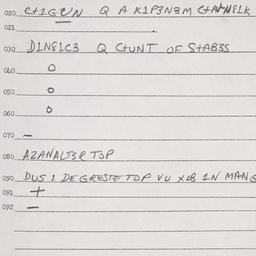 020 C+1GEN Q A K1P3N3M C+ANN81K
021
030 D1N81C3 Q C+UNT OF S+AB3S
040 O
050 O
060 O
070 —
080 AZANALT3R TOP
090 DUS 1 DE GRESTE TOP VU X08 1N MANG
091 +
092 —